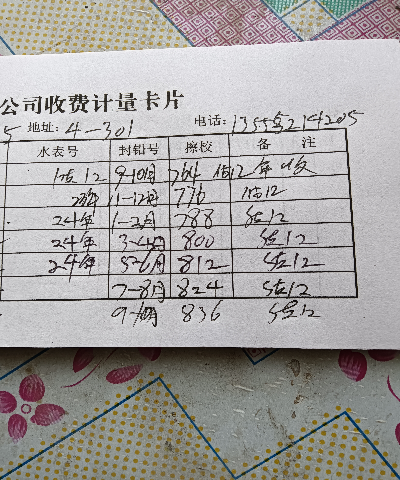 公司收费计量卡片
5 地址: 4-301 电话: 13555214205
水表号 封铅号 擦校 备 注
估12 9-10月 764 估12 年收
11-12月 776 估12
24年 1-2月 788 估12
24年 3-4月 800 估12
24年 5-6月 812 估12
7-8月 824 估12
9-10月 836 估12